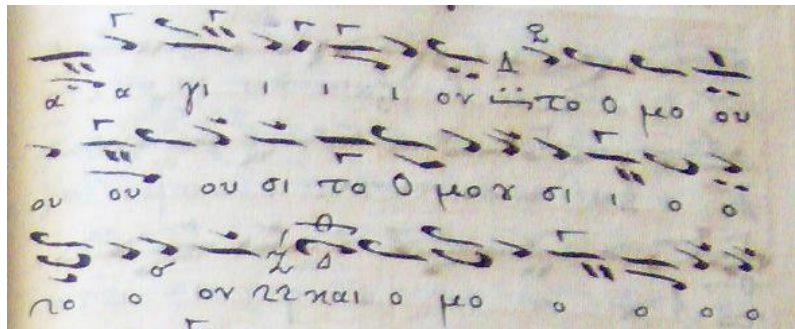 α α γι ι ι ι ου το ο μο ου
ου ου ου σι το ο μο ȣ σι ι ο ο
ο ο ου και ο μο ο ο ο ο